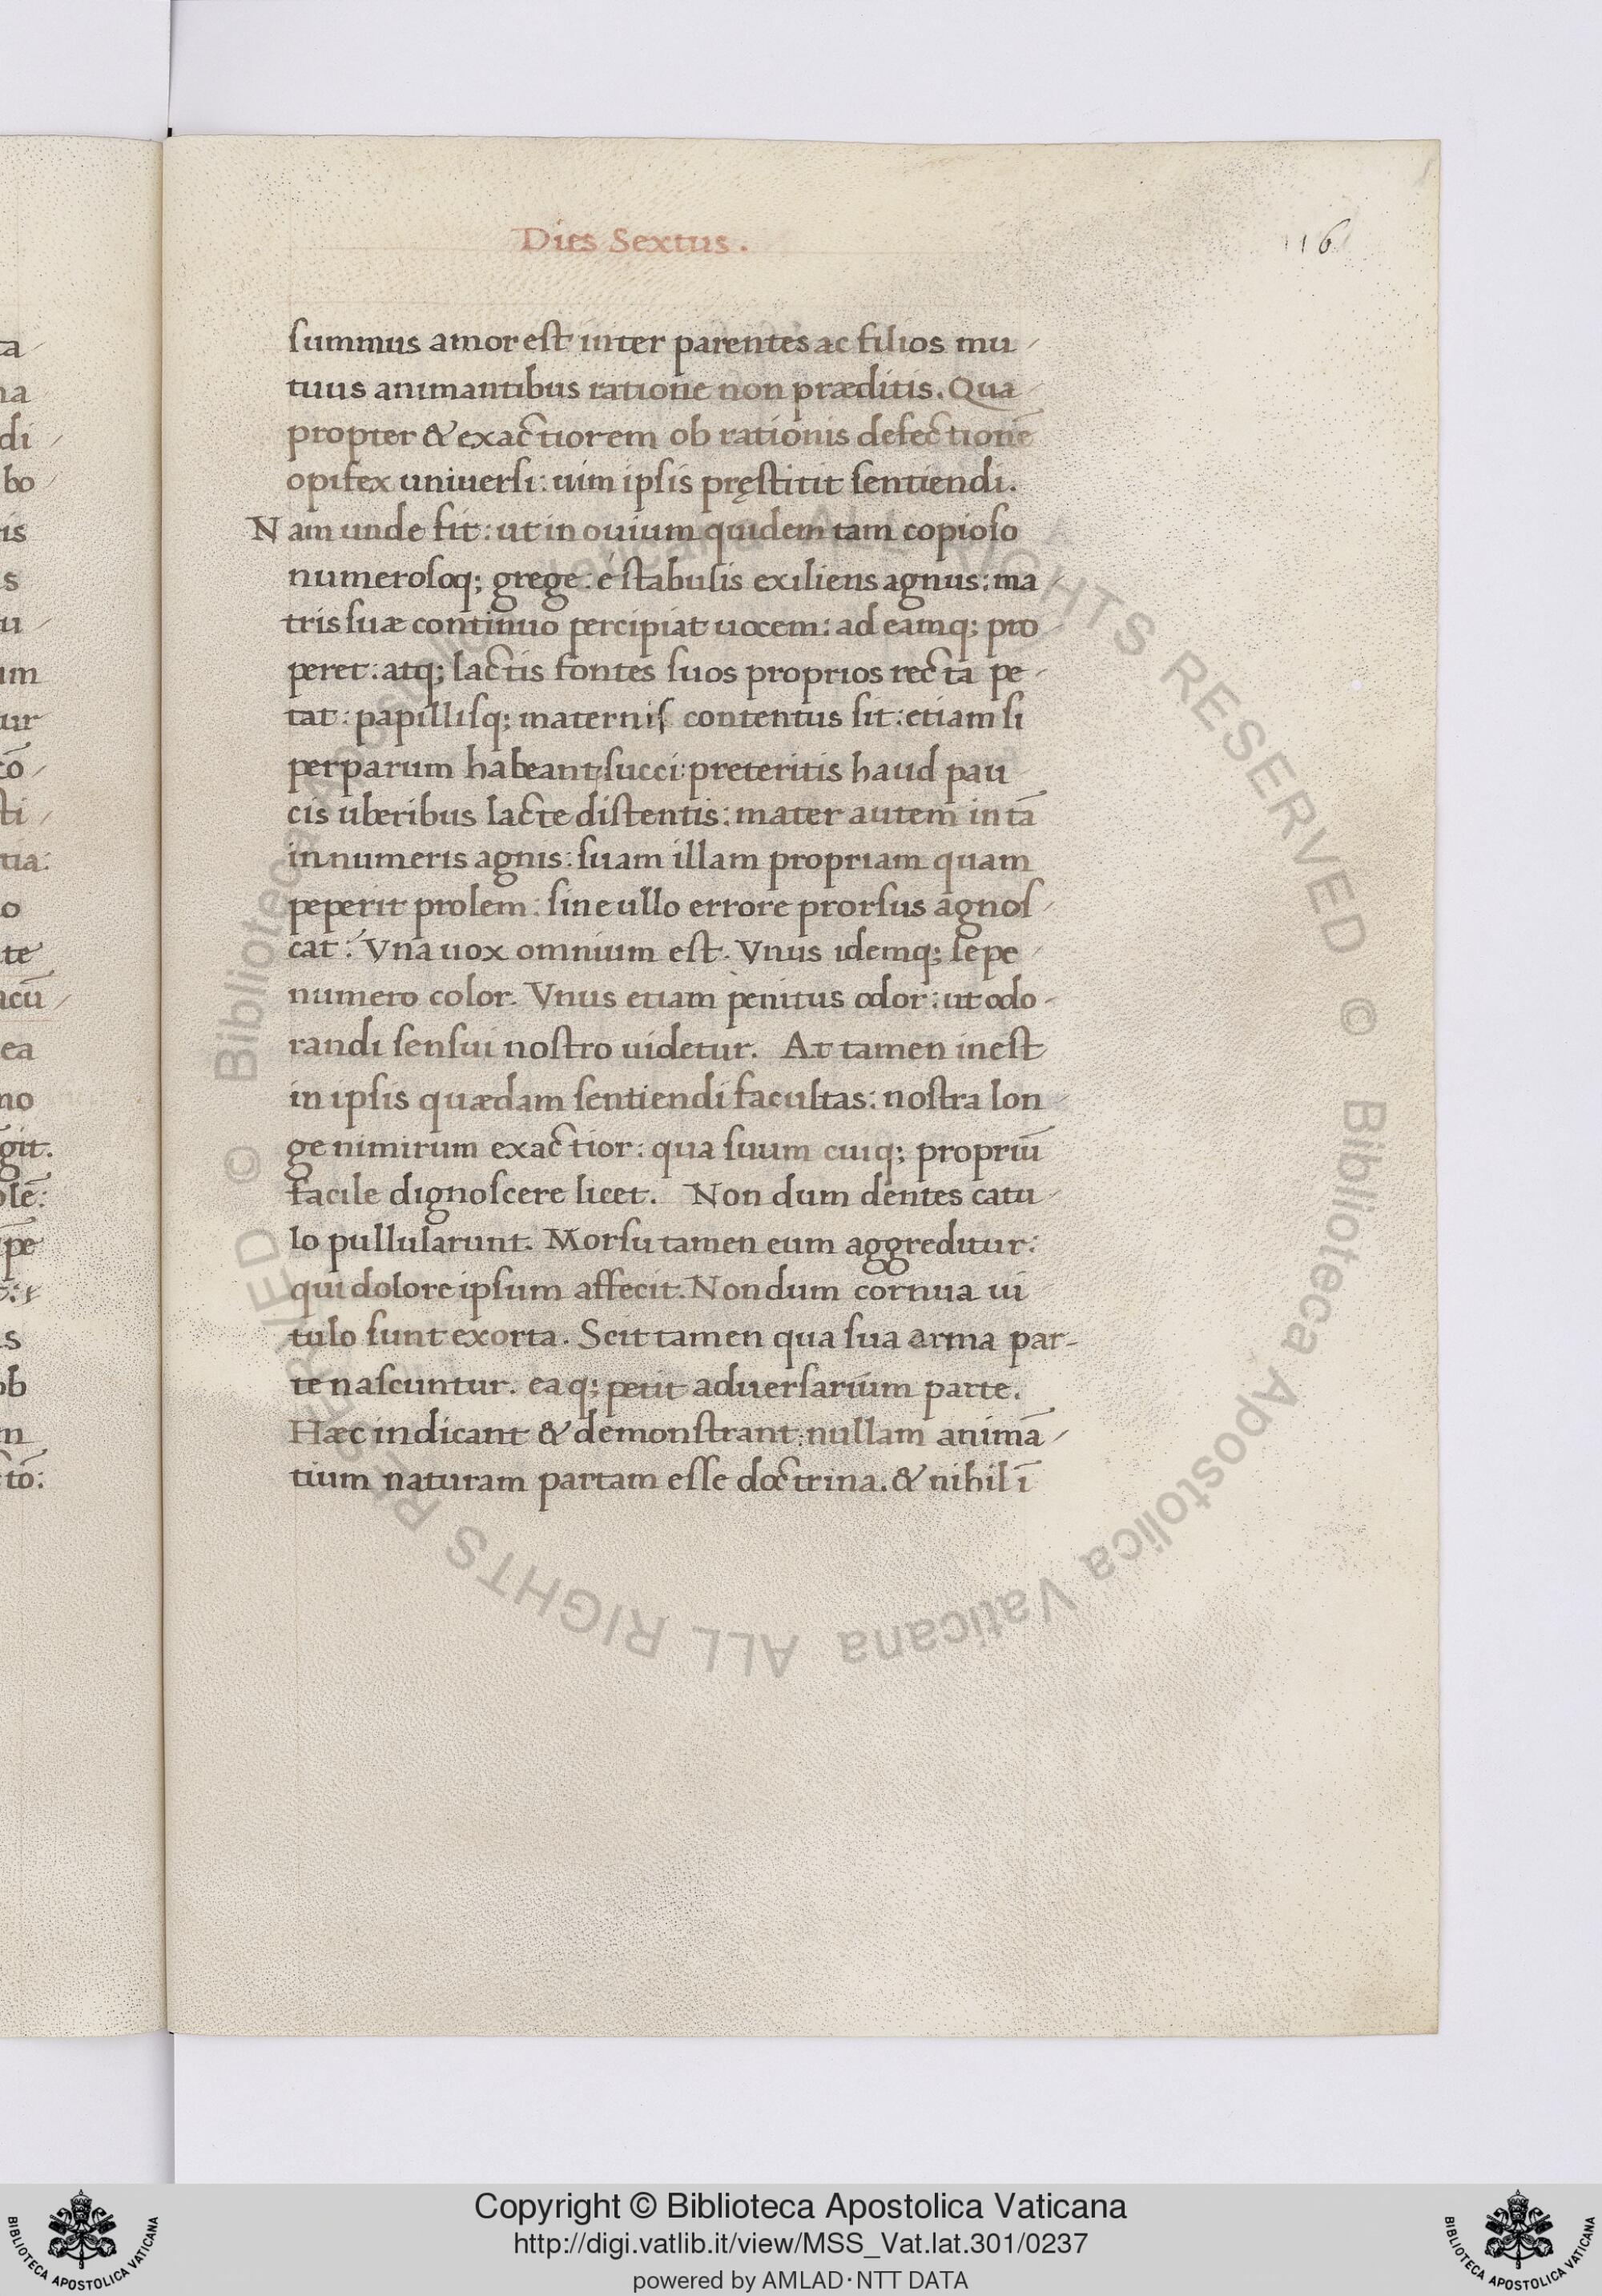 Dies Sextus.
116
summus amor est inter parentes ac filios mu-
tuus animantibus ratione non præditis. Qua-
propter & exactiorem ob rationis defectionē
opifex universi: uim ipsis pręstitit sentiendi.
Nam unde fit: ut in ouium quidem tam copioso
numerosoq; grege: é stabulis exiliens agnus: ma-
tris suæ continuo percipiat uocem: ad eamq; pro-
peret: atq; lactis fontes suos proprios recta pe-
tat: papillisq; maternis contentus sit: etiam si
perparum habeant succi: preteritis haud pau-
cis uberibus lacte distentis: mater autem in tā
innumeris agnis: suam illam propriam quam
peperit prolem: sine ullo errore prorsus agnos-
cat? Vna uox omnium est. Vnus idemq; sepe-
numero color. Vnus etiam penitus odor: ut odo-
randi sensui nostro uidetur. At tamen inest
in ipsis quædam sentiendi facultas: nostra lon-
ge nimirum exactior: qua suum cuiq; propriū
facile dignoscere licet. Non dum dentes catu-
lo pullularunt. Morsu tamen eum aggreditur:
qui dolore ipsum affecit. Nondum cornua ui-
tulo sunt exorta. Scit tamen qua sua arma par-
te nascuntur. eaq; petit aduersarium parte.
Hæc indicant & demonstrant: nullam animā-
tium naturam partam esse doctrina. & nihil ī
ta-
na
di-
bo-
is
s
u-
um
ur
cō-
sti-
tia:
o
te
ncū-
ea
mo
git.
olē:
pe
s
ob
m
ctō:
© Biblioteca Apostolica Vaticana ALL RIGHTS RESERVED
© Biblioteca Apostolica Vaticana ALL RIGHTS RESERVED
Copyright © Biblioteca Apostolica Vaticana
http://digi.vatlib.it/view/MSS_Vat.lat.301/0237
powered by AMLAD·NTT DATA
BIBLIOTECA APOSTOLICA VATICANA
BIBLIOTECA APOSTOLICA VATICANA